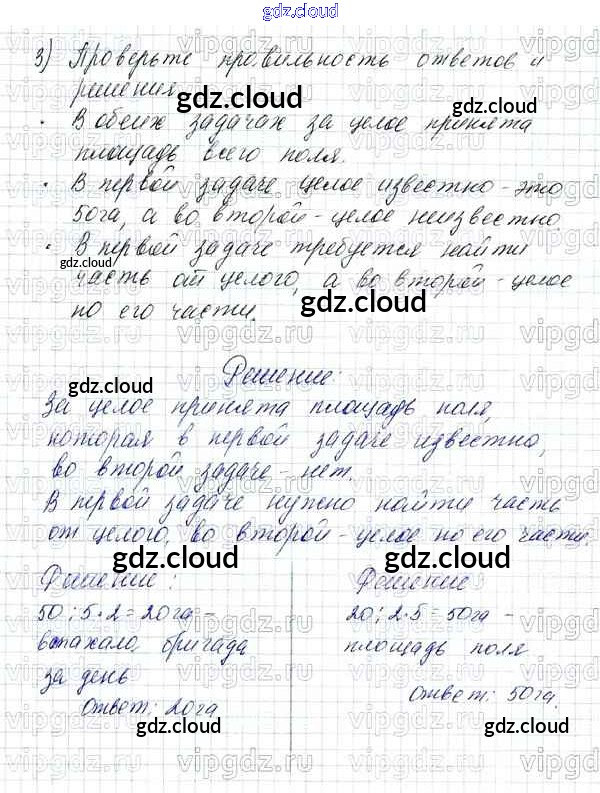 gdz.cloud
3) Проверьте правильность ответов и
решения.
gdz.cloud
· В обеих задачах за целое принята
площадь всего поля.
· В первой задаче целое известно - это
50га, а во второй - целое неизвестно.
· В первой задаче требуется найти
gdz.cloud
часть от целого, а во второй - целое
gdz.cloud
по его части.
Решение:
gdz.cloud
За целое принята площадь поля,
которая в первой задаче известно,
во второй задаче - нет.
gdz.cloud
В первой задаче нужно найти часть
от целого, во второй - целое по его части.
gdz.cloud
gdz.cloud
Решение:
50 : 5 · 2 = 20га -
вспахало бригада
за день
Ответ: 20га
gdz.cloud
Решение:
20 : 2 · 5 = 50га -
площадь поля
Ответ: 50га.
gdz.cloud
vipgdz.ru